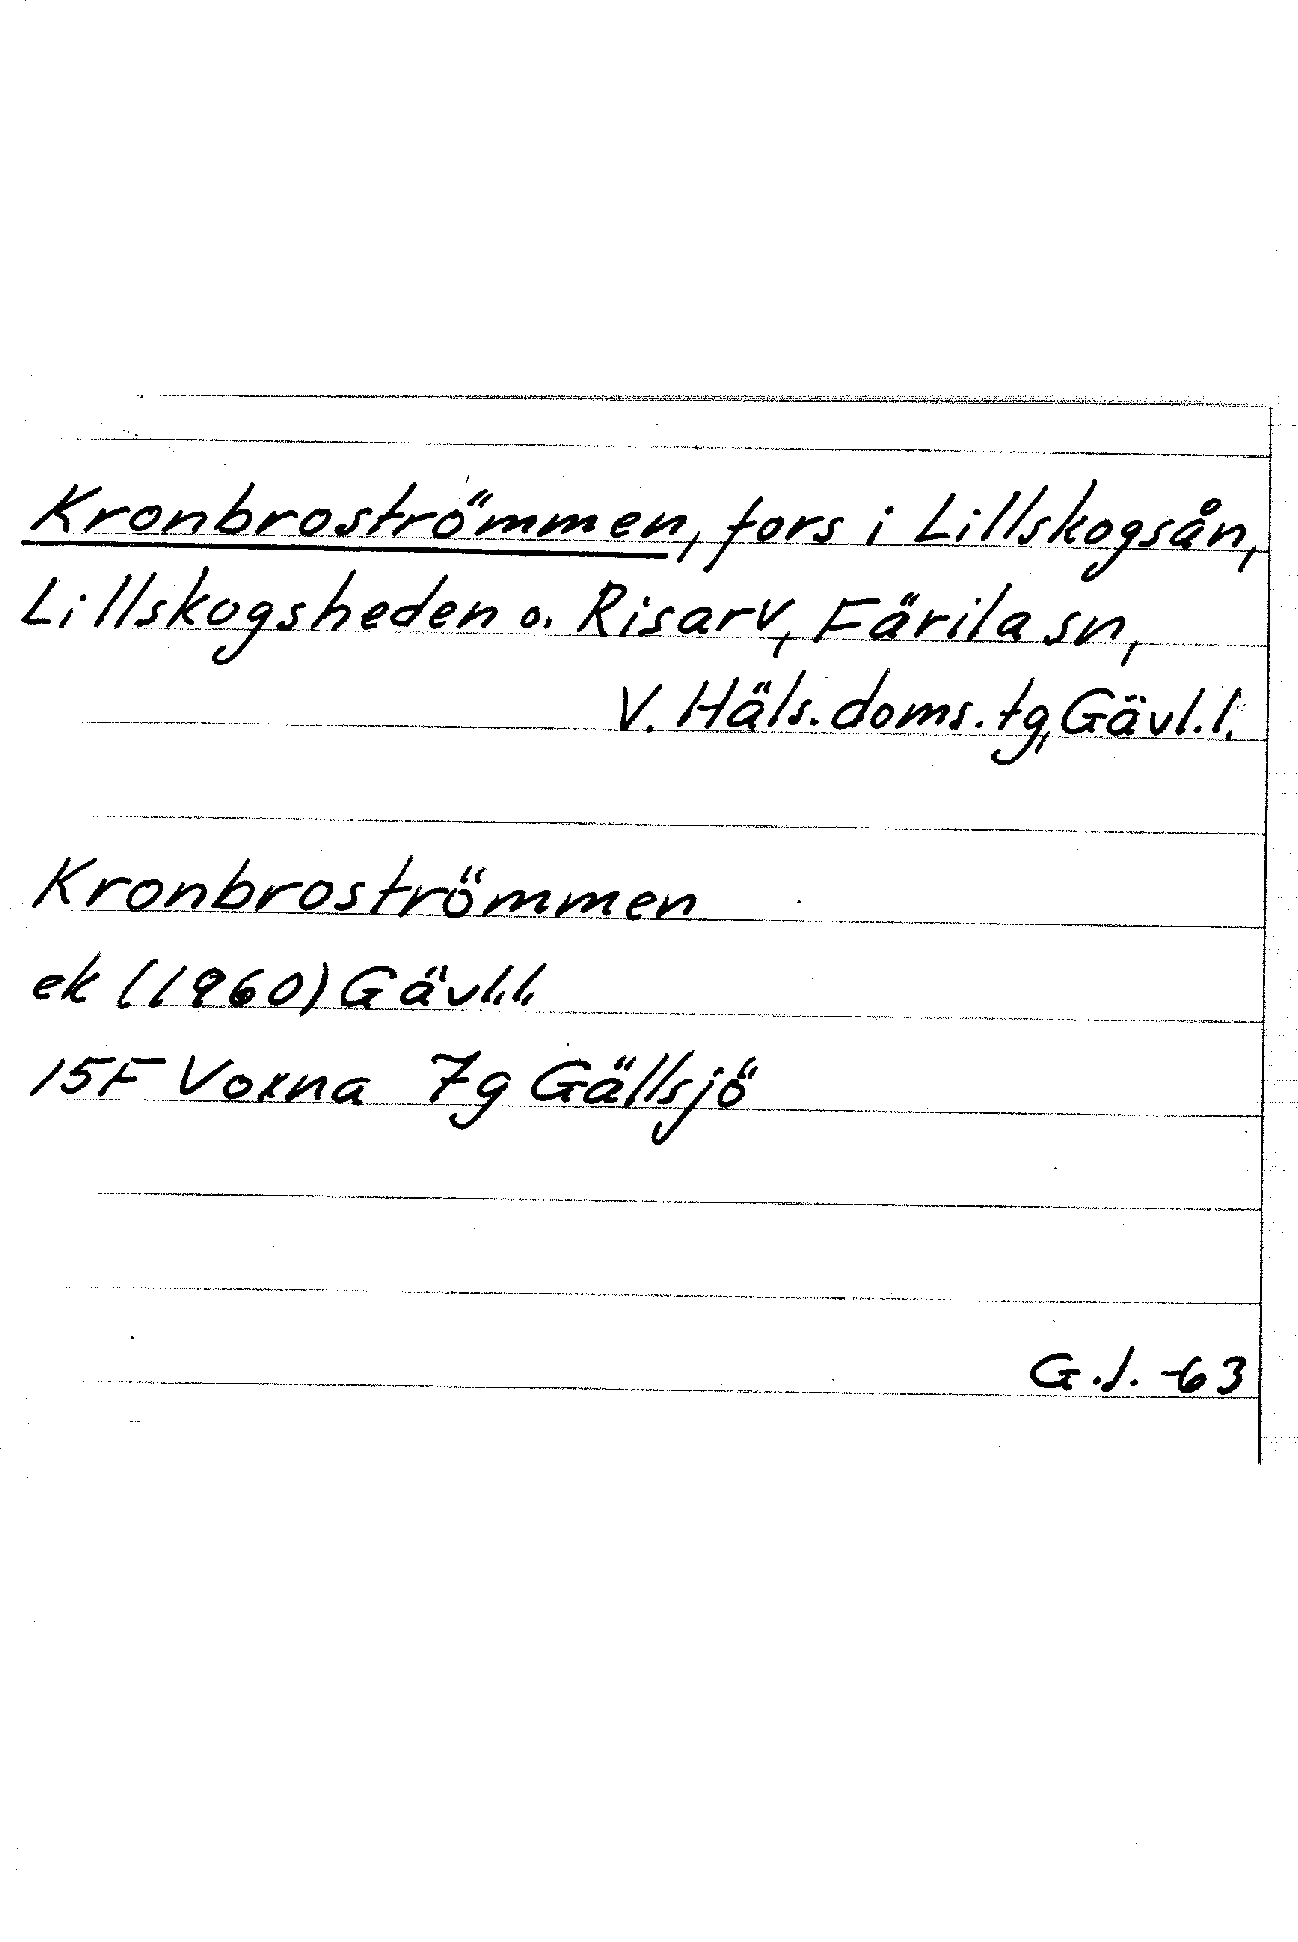 Kronbroströmmen, fors i Lillskogsån,
Lillskogsheden o. Risarv, Färila sn,
V. Häls. doms. tg, Gävl. l.
Kronbroströmmen
ek (1960) Gävl. l.
15F Voxna 7g Gällsjö
G.J. -63